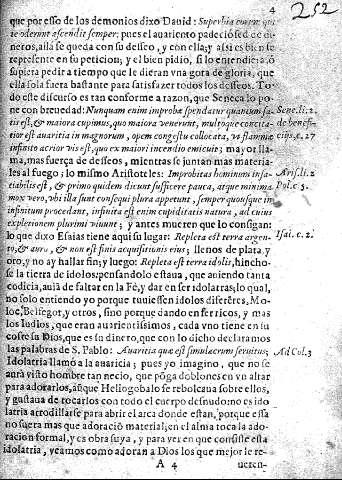 4
252
que por esso de los demonios dixo Dauid: Superbia eorum qui
te oderunt ascendit semper; pues el auariento padecio sed de di
neros, allà se queda con su desseo, y con ella; y assi es bien se
represente en su peticion; y el bien pidio, si lo entendiera, ò
supiera pedir a tiempo que le dieran vna gota de gloria, que
ella sola fuera bastante para satisfazer todos los desseos. To
do este discurso es tan conforme a razon, que Seneca lo po
ne con breuedad: Nunquam enim improbæ spei datur quantum sa
tis est, & maiora cupimus, quo maiora venerunt, multoque concita
tior est auaritia in magnorum, opem congestu collocata, vt flammæ
infinito acrior vis est, quo ex maiori incendio emicuit; mayor lla
ma, mas fuerça de desseos, mientras se juntan mas materia
les al fuego; lo mismo Aristoteles: Improbitas hominum insa
tiabilis est, & primo quidem dicunt sufficere pauca, atque minima
mox vero, vbi illa sunt consequi plura appetunt, semper quousque in
infinitum procedant, infinita est enim cupiditatis natura, ad cuius
explerionem plurimi viuunt; y antes mueren que lo consigan:
lo que dixo Esaias tiene aqui su lugar: Repleta est terra argen
to, & auro, & non est finis acquisitionis eius; llenos de plata, y
oro, y no ay hallar fin; y luego: Repleta est terra idolis, hincho
se la tierra de idolos; pensandolo estaua, que auiendo tanta
codicia, auia de faltar en la Fè, y dar en ser idolatras; lo qual,
no solo entiendo yo porque tuuiessen idolos diferẽtes, Mo-
loc, Belfegor, y otros, sino porque dando en ser ricos, y mas
los Iudios, que eran auarientissimos, cada vno tiene en su
cofre su Dios, que es su dinero, que con lo dicho declaramos
las palabras de S. Pablo: Auaritia quæ est simulacrorum seruitus;
Idolatria llamò a la auaricia; pues yo imagino, que no se
aurà visto hombre tan necio, que põga doblones en vn altar
para adorarlos, aũque Heliogobalo se rebolcaua sobre ellos,
y gustaua de tocarlos con todo el cuerpo desnudo: no es ido
latria arrodillarse para abrir el arca donde estan, porque essa
no fuera mas que adoracion material; en el alma toca la ado
racion formal, y es obra suya, y para ver en que consiste esta
idolatria, veamos como adoran a Dios los que mejor le re-
A 4
ueren-
Sene. li. 2.
de benefi-
cijs, c. 27
Arist. li. 2
Pol. c. 5.
Isai. c. 2.
Ad Col. 3